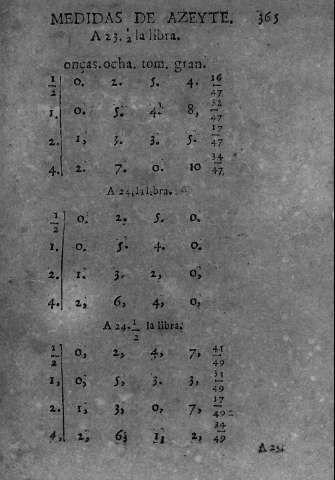 MEDIDAS DE AZEYTE. 365
A 23. 1/2 la libra.
onças. ocha. tom. gran.
1/2 0. 2. 5. 4. 16/47
1. 0. 5. 4. 8, 32/47
2. 1, 3. 3. 5. 17/47
4. 2. 7. 0. 10 34/47
A 24. la libra.
1/2 0. 2. 5. 0.
1. 0. 5. 4. 0.
2. 1. 3. 2, 0,
4. 2, 6, 4, 0,
A 24. 1/2 la libra.
1/2 0, 2, 4, 7, 41/49
1, 0, 5, 3. 3, 33/49
2. 1, 3, 0, 7, 17/49
4, 2, 6, 1, 2, 34/49